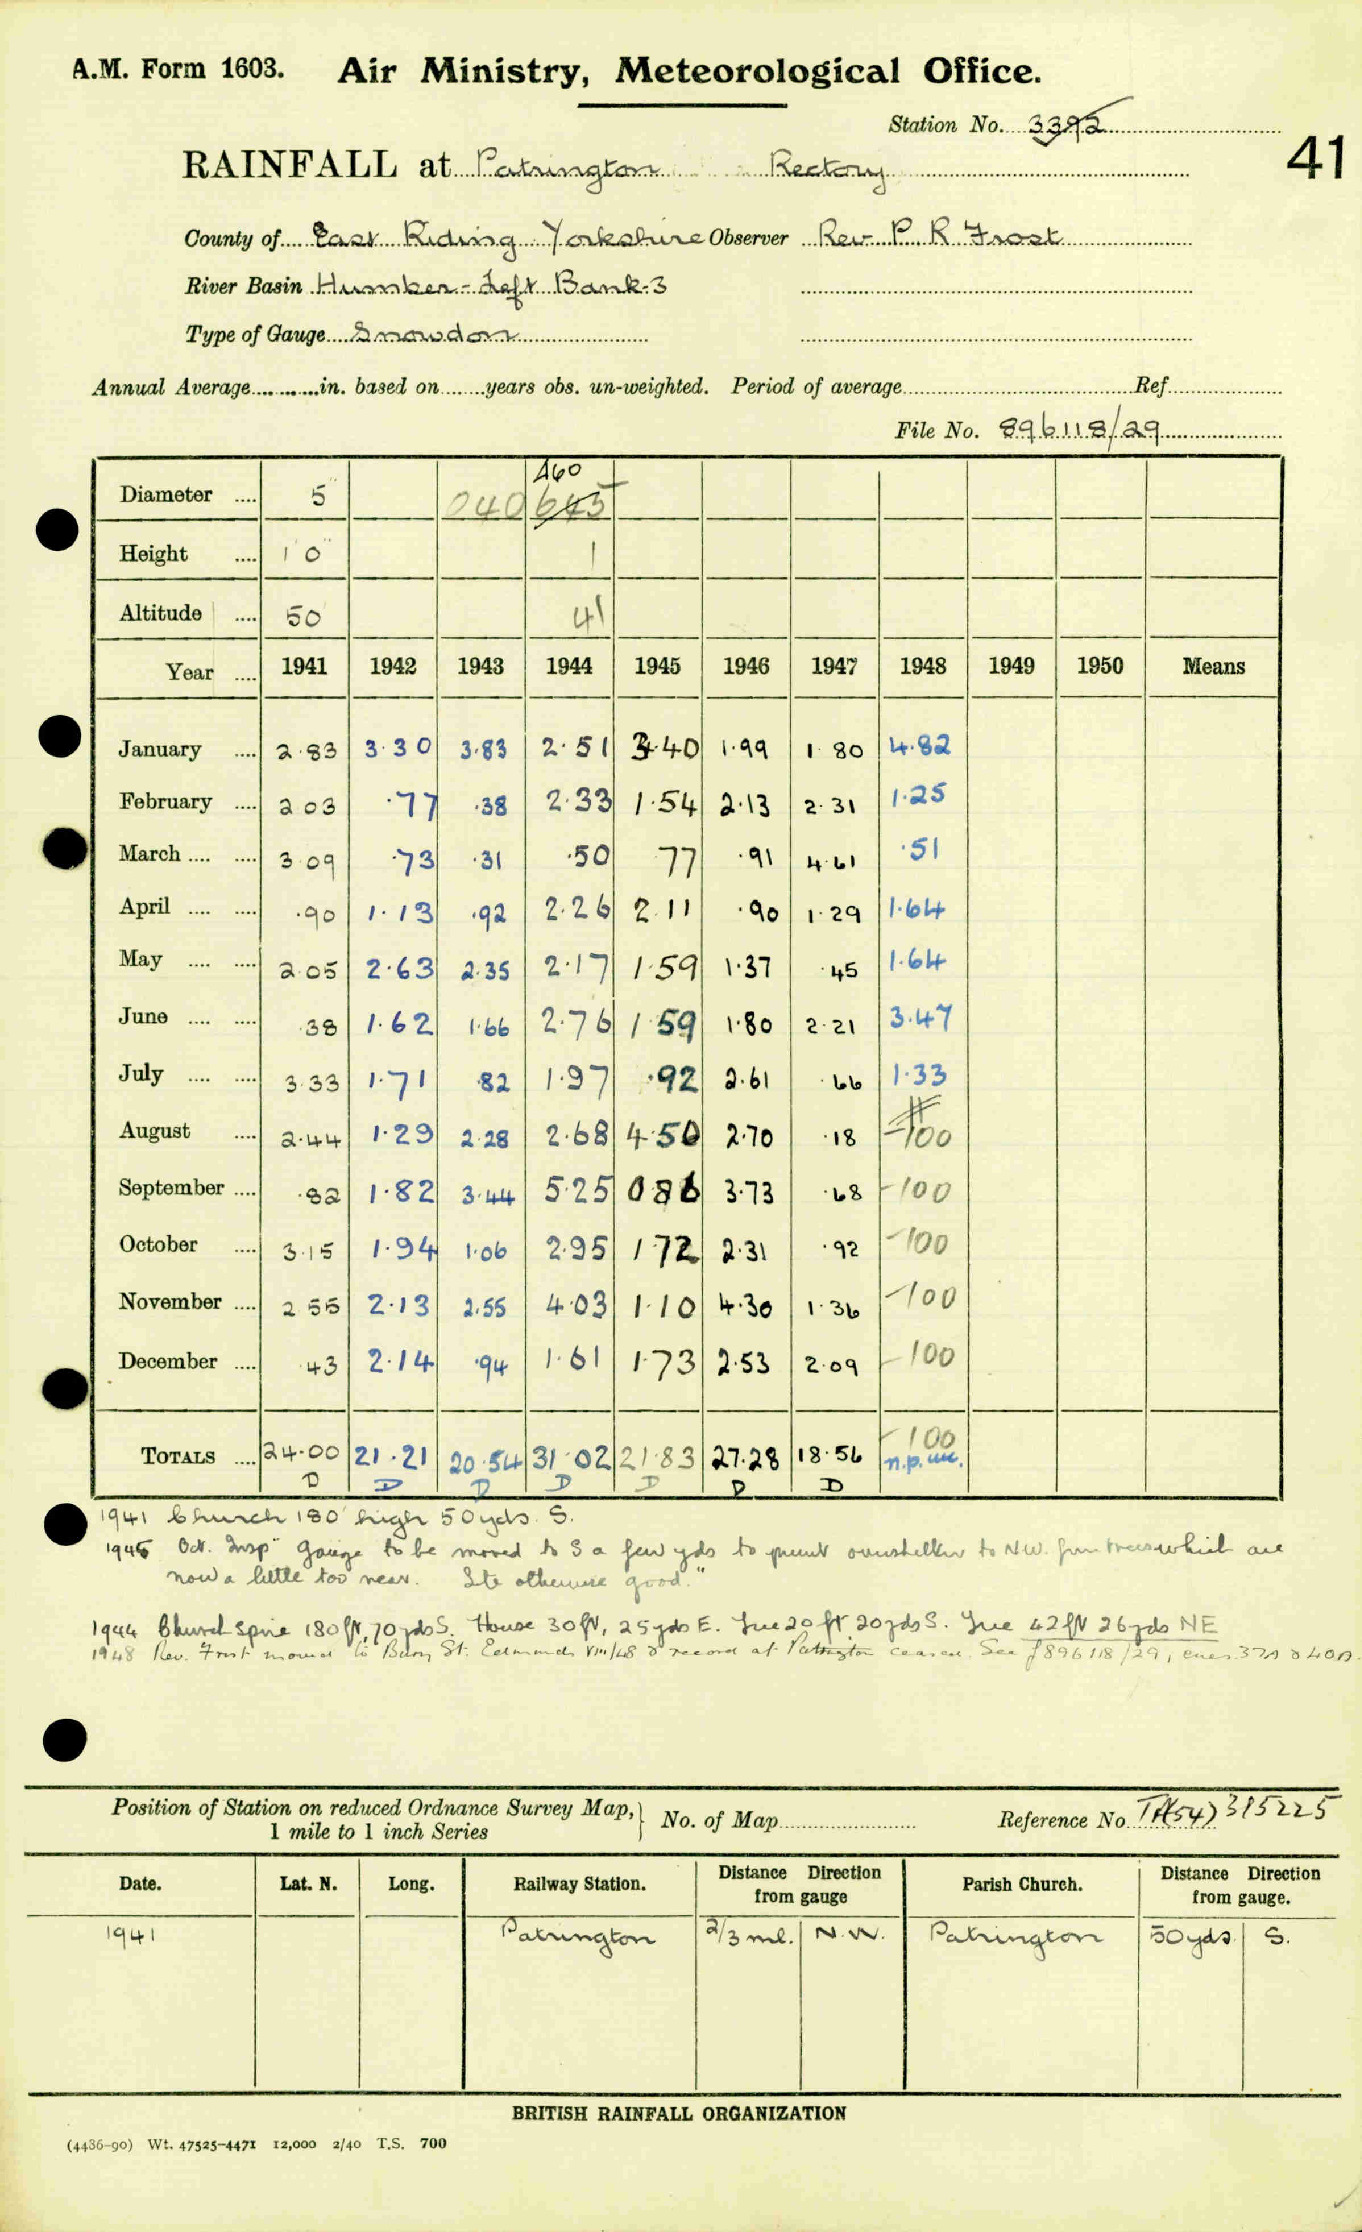 A.M. Form 1603. Air Ministry, Meteorological Office.
Station No. 3392
41
RAINFALL at Patrington Rectory
County of East Riding Yorkshire Observer Rev P. R Frost
River Basin Humber - Left Bank-3
Type of Gauge Snowdon
Annual Average in. based on years obs. un-weighted. Period of average Ref
File No. 896118/29
A60
Diameter .... 5" 040 645
Height .... 1' 0" 1
Altitude .... 50 41
Year .... 1941 1942 1943 1944 1945 1946 1947 1948 1949 1950 Means
January .... 2·83 3·30 3·83 2·51 3·40 1·99 1·80 4·82
February .... 2 03 ·77 ·38 2·33 1·54 2·13 2·31 1·25
March .... .... 3 09 ·73 ·31 ·50 77 ·91 4·61 ·51
April .... .... ·90 1·13 ·92 2·26 2 11 ·90 1·29 1·64
May .... .... 2·05 2·63 2·35 2·17 1·59 1·37 ·45 1·64
June .... .... ·38 1·62 1·66 2·76 1 59 1·80 2·21 3·47
July .... .... 3·33 1·71 ·82 1·97 ·92 2·61 ·66 1·33
August .... 2·44 1·29 2·28 2·68 4·50 2·70 ·18 -100
September .... ·82 1·82 3·44 5·25 086 3·73 ·68 -100
October .... 3·15 1·94 1·06 2·95 172 2·31 ·92 -100
November .... 2 55 2·13 2.55 4·03 1·10 4·30 1·36 -100
December .... ·43 2·14 ·94 1·61 1·73 2·53 2·09 -100
TOTALS .... 24·00 21·21 20·54 31·02 21·83 27·28 18·56 -100
n.p.
D D D D D D D
1941 Church 180' high 50yds S.
1945 Oct. Insp "Gauge to be moved to S a few yds to prevent overshelter to NW. from trees which are
now a little too near. Site otherwise good."
1944 Church spire 180ft, 70yds S. House 30ft, 25yds E. Tree 20ft 20yds S. Tree 42ft 26yds NE
1948 Rev. Frost moved to Bury St. Edmunds VIII/48 & record at Patrington ceased. See f896118/29, encs 37A & 40A.
Position of Station on reduced Ordnance Survey Map, 1 mile to 1 inch Series } No. of Map Reference No. TA(54) 315225
Date. Lat. N. Long. Railway Station. Distance Direction from gauge Parish Church. Distance Direction from gauge.
1941 Patrington 2/3 ml. N.W. Patrington 50yds S.
BRITISH RAINFALL ORGANIZATION
(4436-90) Wt. 47525-4471 12,000 2/40 T.S. 700